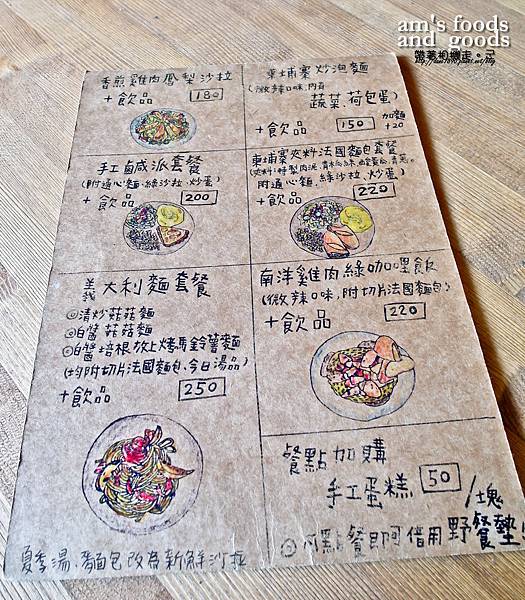 am's foods
and goods
香煎雞肉鳳梨沙拉
+飲品 180
柬埔寨炒泡麵
(微辣口味,內有
蔬菜、荷包蛋)
+飲品 150 加麵+20
手工鹹派套餐
(附通心麵、綠沙拉、炒蛋)
+飲品 200
柬埔寨夾料法國麵包套餐
附通心麵、綠沙拉、炒蛋)
+飲品 220
義大利麵套餐
◎清炒菇菇麵
◎白醬菇菇麵
◎白醬培根放上烤馬鈴薯麵
(均附切片法國麵包、今日湯品)
+飲品 250
南洋雞肉綠咖哩飯
(微辣口味,附切片法國麵包)
+飲品 220
餐點加購
手工蛋糕 50/塊
◎凡點餐即可借用野餐墊!
夏季湯、麵包改為新鮮沙拉